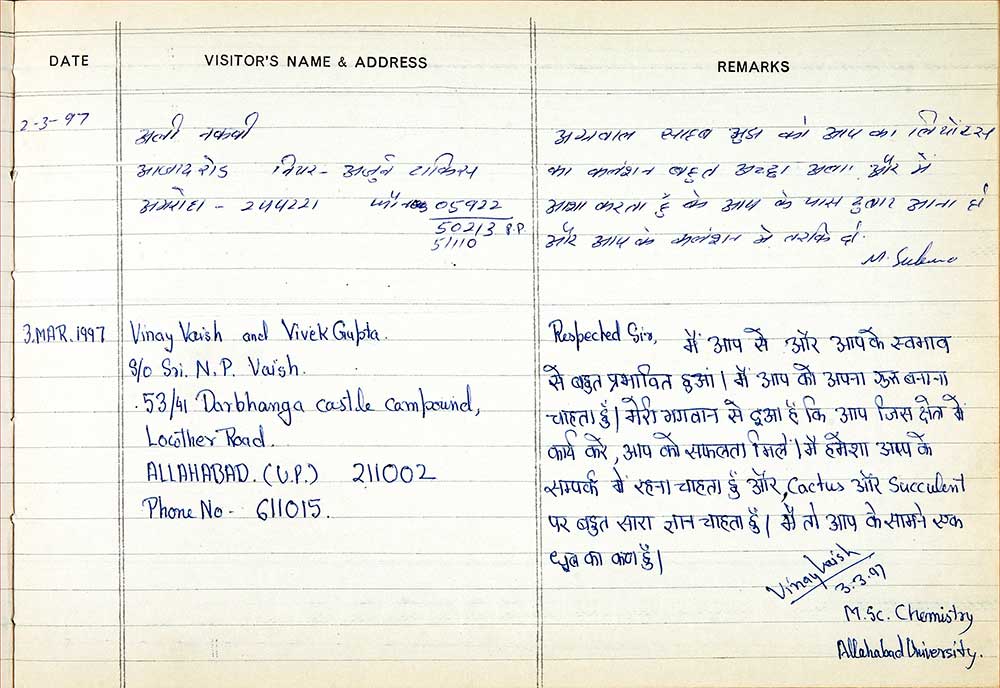 DATE
VISITOR'S NAME & ADDRESS
REMARKS
2-3-97
अली नकवी
आजाद रोड नियर- अर्जुन टाकिस
अमरोहा - 244221 05922
50213 P.P.
51110
अग्रवाल साहब मुझ को आप का
का कलेशन बहुत अच्छा लगा. और में
आशा करता हूँ के आप के पास दुबार आना हो
और आप के कलेशन मे तरकि हो.
M.
3.MAR.1997
Vinay Vaish and Vivek Gupta.
S/o Sri. N.P. Vaish.
53/41 Darbhanga castle campound,
Lowther Road.
ALLAHABAD. (U.P.) 211002
Phone No- 611015.
Respected Sir, मैं आप से और आपके स्वभाव
से बहुत प्रभावित हुआं। मैं आप को अपना गुरु बनाना
चाहता हूँ। मेरी भगवान से दूआ हैं कि आप जिस क्षेत्र में
कार्य करे, आप को सफलता मिले। मैं हमेशा आप के
सम्पर्क में रहना चाहता हूँ और, Cactus और Succulent
पर बहुत सारा ज्ञान चाहता हूँ। मैं तो आप के सामने एक
धूल का कण हूँ।
Vinay Vaish
3.3.97
M.Sc. Chemistry
Allahabad University.